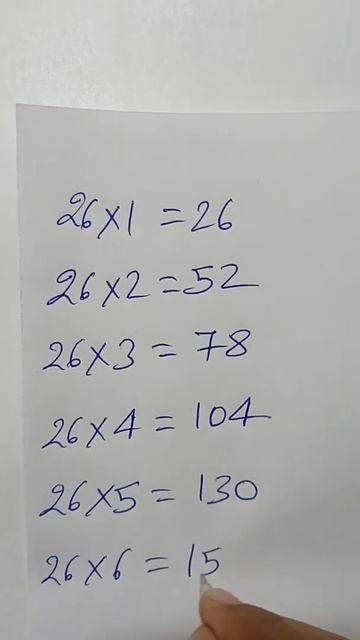 26×1 =26
26×2=52
26×3 = 78
26×4 = 104
26×5 = 130
26×6 = 15